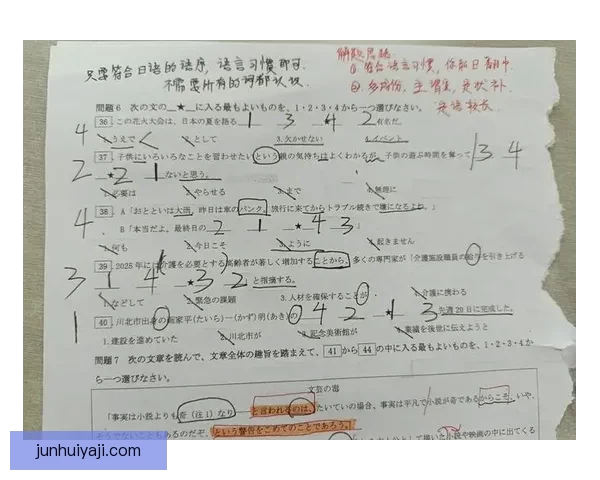 只要符合日语的语序,语言习惯即可.
不需要所有的词都认识
解题思路
① 符合语言习惯,
② 主谓宾,定状补
定语较长
問題6 次の文の ★ に入る最もよいものを、1・2・3・4から一つ選びなさい。
36 この花火大会は、日本の夏を語る 1 3 ★4 2 有名だ。
4
1.うえで 2.として 3.欠かせない 4.イベント
37 子供にいろいろなことを習わせたいという親の気持ちはよくわかるが、子供の遊ぶ時間を奪って 3 4
2 ★2 1 ないと思う。
1.必要は 2.やらせる 3.まで 4.無理に
38 A「おとといは大雨、昨日は車のパンク。旅行に来てからトラブル続きで嫌になるよね。」
4 B「本当だよ。最終日の 2 1 ★4 3 」
1.何も 2.今日こそ 3.ように 4.起きません
39 2025年には介護を必要とする高齢者が著しく増加することから、多くの専門家が「介護施設職員の給与を引き上げる
3 1 4 ★3 2 と指摘する。
1.などして 2.緊急の課題 3.人材を確保することが 4.介護に携わる
40 川北市出身の画家平(たいら)一(かず)明(あき)の 4 2 ★1 3 先週20日に完成した。
1
1.建設を進めていた 2.川北市が 3.記念美術館が 4.業績を後世に伝えようと
問題7 次の文章を読んで、文章全体の趣旨を踏まえて、41 から 44 の中に入る最もよいものを、1・2・3・4か
ら一つ選びなさい。
「事実は小説よりも奇(注1)なり と言われるのは、たいていの場合、事実は平凡で小説が奇であるからこそ、いや、
そうでないこともあるのだぞ、という警告をこめてのことであろう。
小説や映画の中に出てくる
junhuiyaji.com